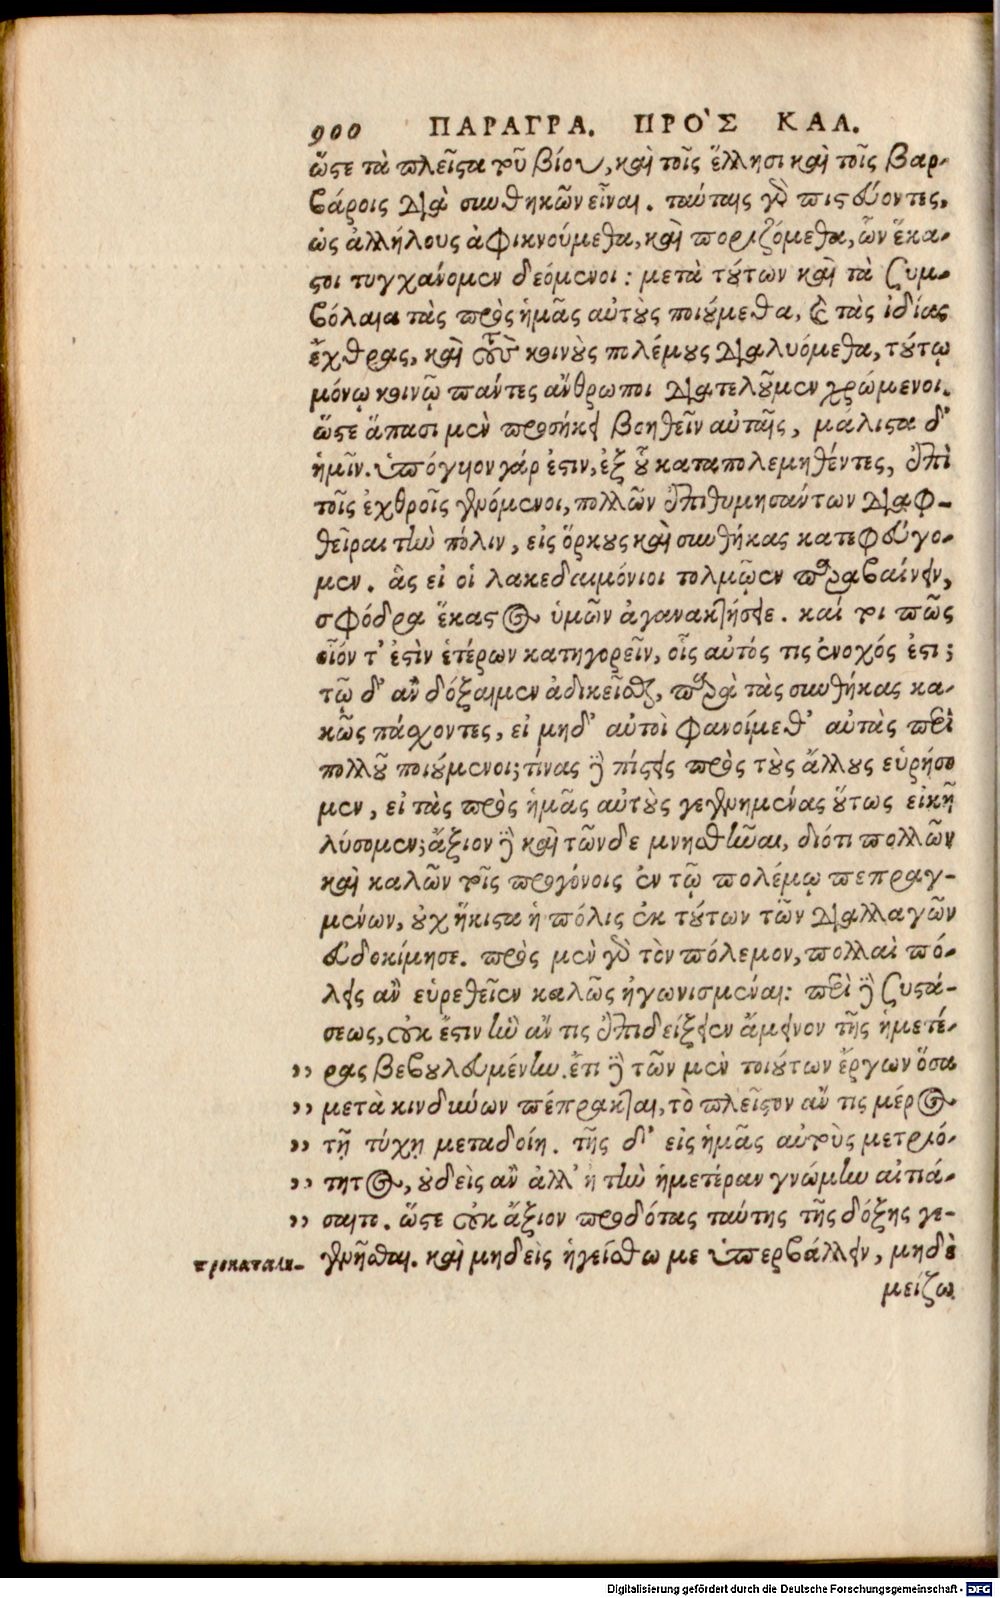 900 ΠΑΡΑΓΡΑ. ΠΡΟ`Σ ΚΑΛ.
ὥστε τὰ πλεῖστα τοῦ βίου, καὶ τοῖς ἕλλησι καὶ τοῖς βαρ-
βάροις διὰ συνθηκῶν εἶναι. ταύταις γὸ πιστεύοντες,
ὡς ἀλλήλους ἀφικνούμεθα, καὶ ποριζόμεθα, ὧν ἕκα-
στοι τυγχάνομεν δεόμενοι: μετὰ τούτων καὶ τὰ ξυμ-
βόλαια τὰς πρὸς ἡμᾶς αὐτοὺς ποιούμεθα, καὶ τὰς ἰδίας
ἔχθρας, καὶ τοὺς κοινοὺς πολέμους διαλυόμεθα, τούτῳ
μόνῳ κοινῷ πάντες ἄνθρωποι διατελοῦμεν χρώμενοι.
ὥστε ἅπασι μὲν προσήκει βοηθεῖν αὐταῖς, μάλιστα δ'
ἡμῖν. ὑπόγυιον γάρ ἐστιν, ἐξ οὗ καταπολεμηθέντες, ἐπὶ
τοῖς ἐχθροῖς γενόμενοι, πολλῶν ἐπιθυμησάντων διαφ-
θεῖραι τὴν πόλιν, εἰς ὅρκους καὶ συνθήκας κατεφύγο-
μεν. ἃς εἰ οἱ λακεδαιμόνιοι τολμῷεν παραβαίνειν,
σφόδρα ἕκαστος ὑμῶν ἀγανακτήσειε. καί τοι πῶς
οἷόν τ' ἐστὶν ἑτέρων κατηγορεῖν, οἷς αὐτός τις ἔνοχός ἐστι;
τῷ δ' ἂν δόξαιμεν ἀδικεῖσθαι, παρὰ τὰς συνθήκας κα-
κῶς πάσχοντες, εἰ μηδ' αὐτοὶ φανοίμεθ' αὐτὰς περὶ
πολλοῦ ποιούμενοι; τίνας δὲ πίστεις πρὸς τοὺς ἄλλους εὑρήσο
μεν, εἰ τὰς πρὸς ἡμᾶς αὐτοὺς γεγενημένας οὕτως εἰκῆ
λύσομεν; ἄξιον δὲ καὶ τῶνδε μνησθῆναι, διότι πολλῶν
καὶ καλῶν τοῖς προγόνοις ἐν τῷ πολέμῳ πεπραγ-
μένων, οὐχ ἥκιστα ἡ πόλις ἐκ τούτων τῶν διαλλαγῶν
εὐδοκίμησε. πρὸς μὲν γὸ τὸν πόλεμον, πολλαὶ πό-
λεις ἂν εὑρεθεῖεν καλῶς ἠγωνισμέναι: περὶ δὲ ξυστά-
σεως, οὐκ ἔστιν ἣν ἄν τις ἐπιδείξειεν ἄμεινον τῆς ἡμετέ-
,, ρας βεβουλευμένην. ἔτι δὲ τῶν μὲν τοιούτων ἔργων ὅσα
,, μετὰ κινδύνων πέπρακται, τὸ πλεῖστον ἄν τις μέρος
,, τῇ τύχῃ μεταδοίη. τῆς δ' εἰς ἡμᾶς αὐτοὺς μετριό-
,, τητος, οὐδεὶς ἂν ἀλλ' ἢ τὴν ἡμετέραν γνώμην αἰτιά-
,, σαιτο. ὥστε οὐκ ἄξιον προδότας ταύτης τῆς δόξης γε-
προκαταλη- γενῆσθαι. καὶ μηδεὶς ἡγείσθω με ὑπερβάλλειν, μηδὲ
μείζω
Digitalisierung gefördert durch die Deutsche Forschungsgemeinschaft - DFG